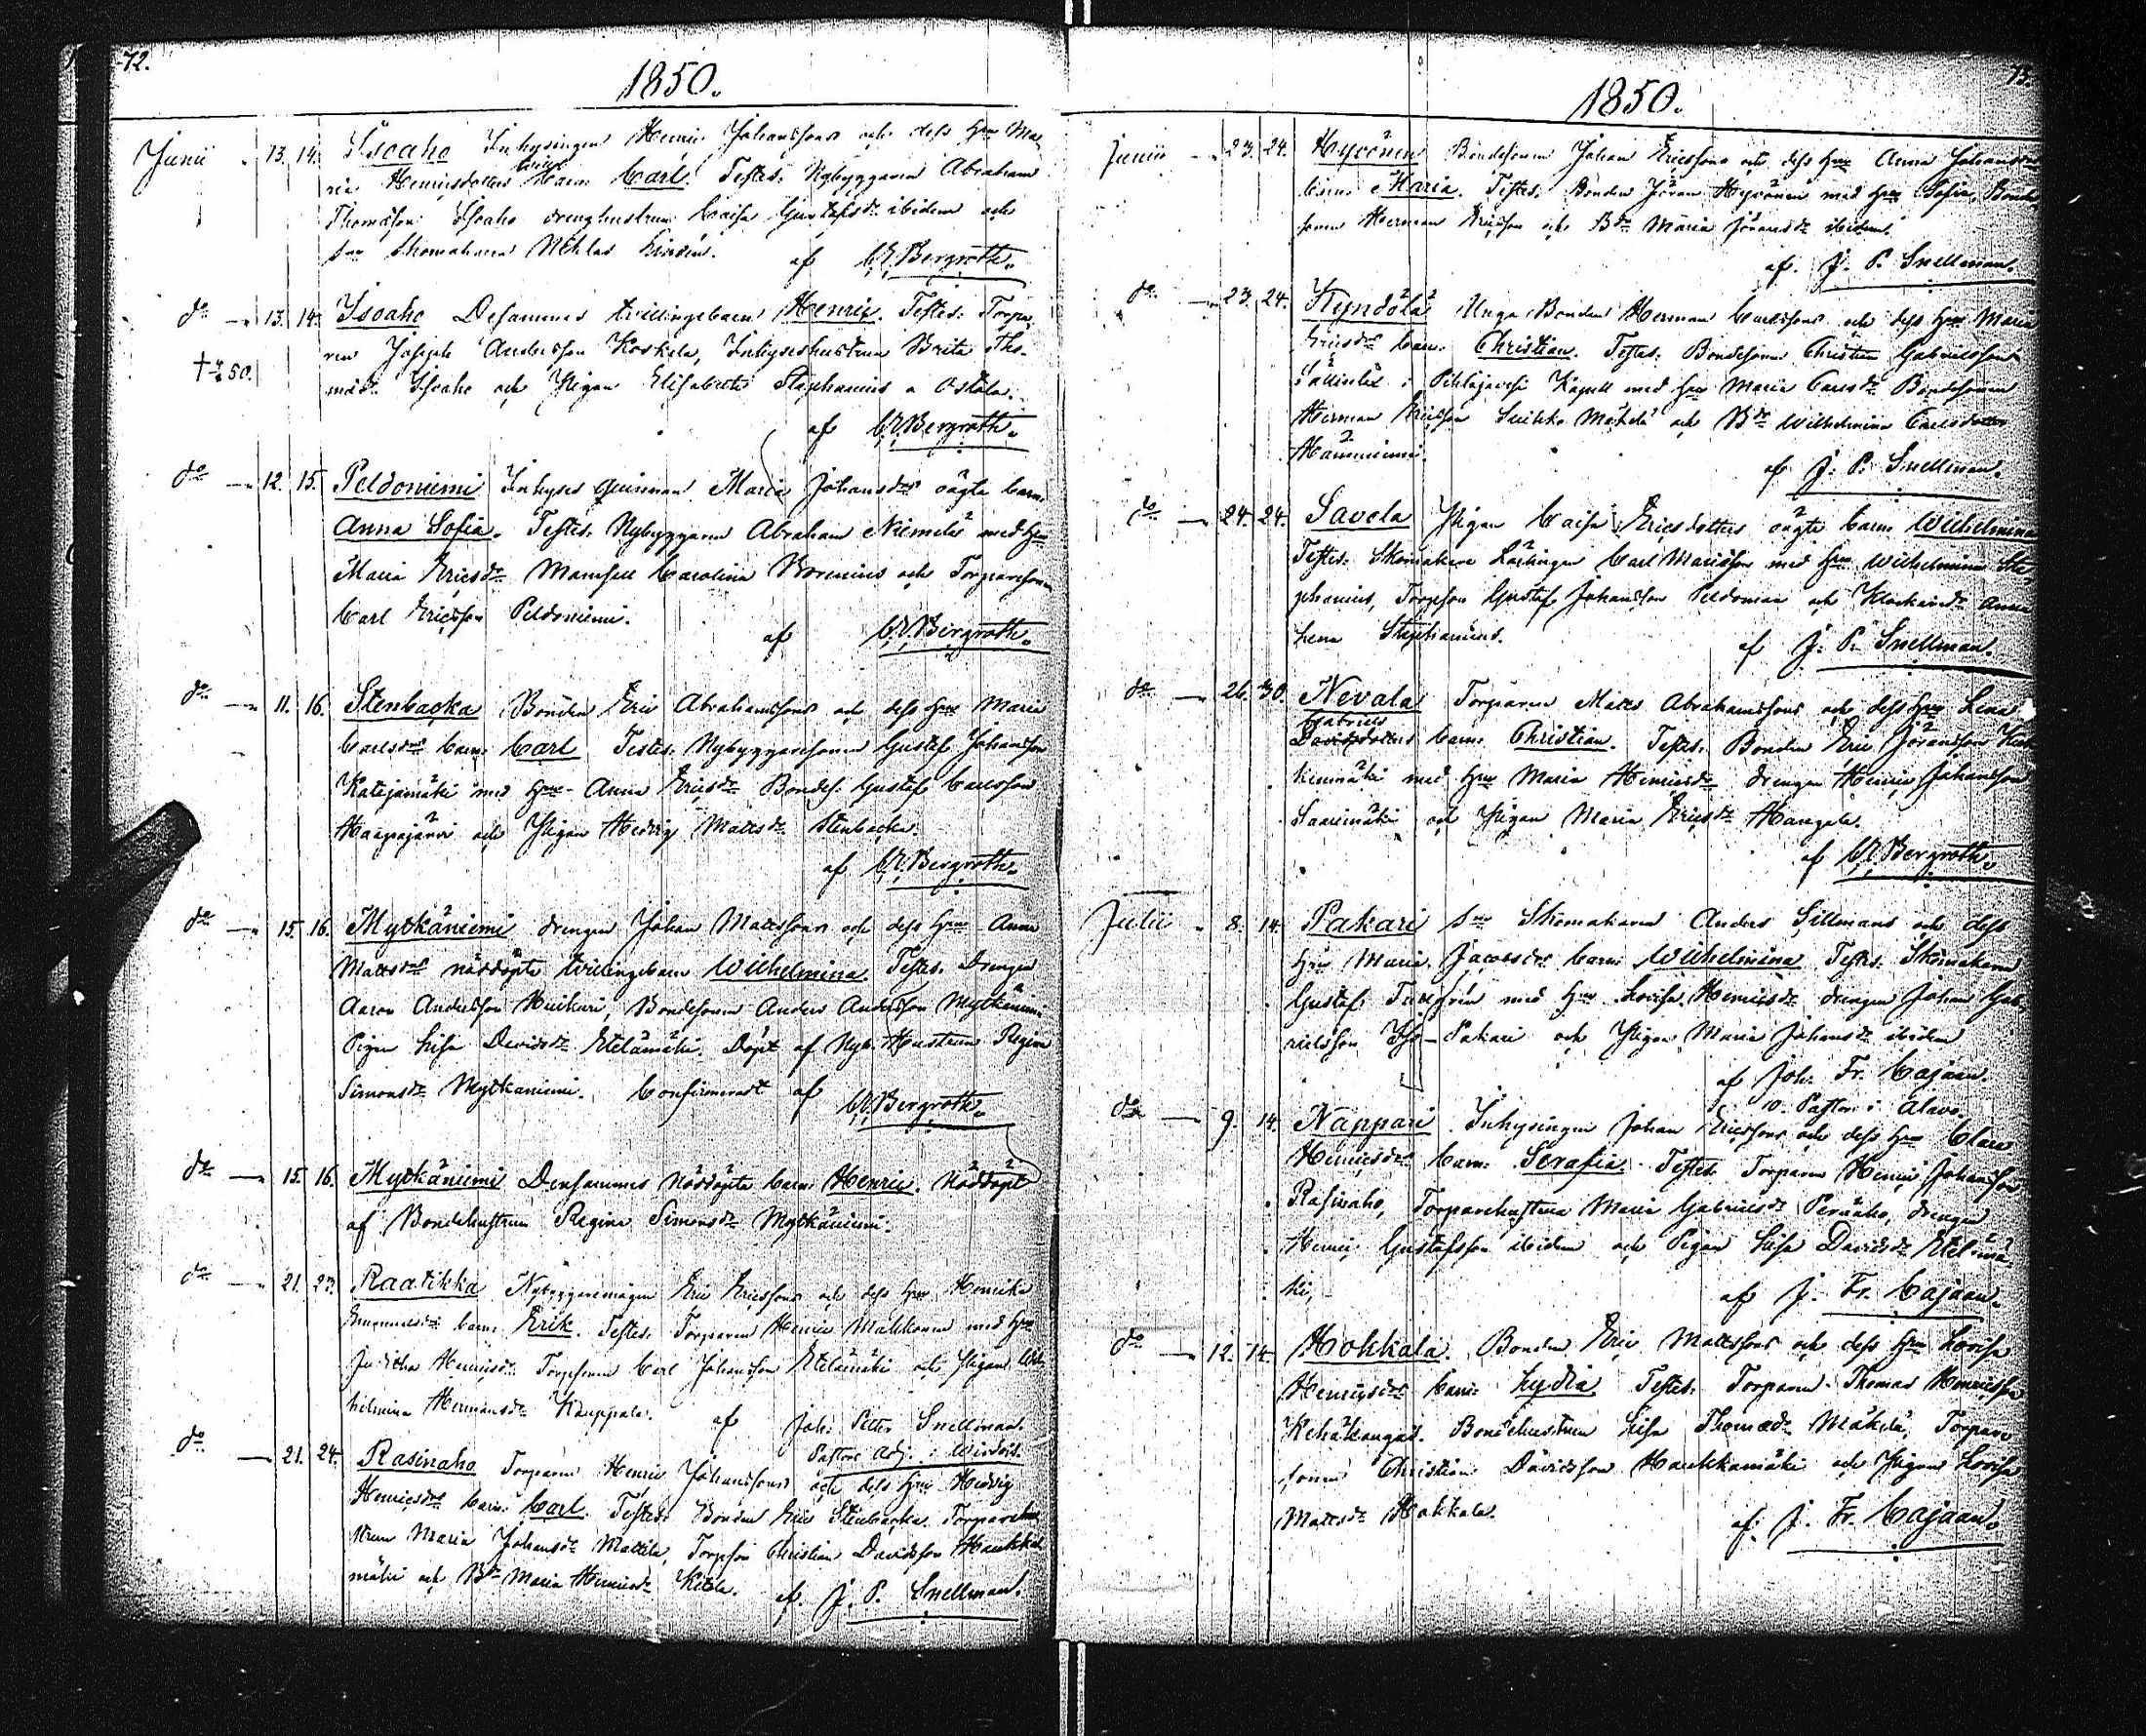 72.
1850.
Junii 13. 14. Isoaho Inhysingen Henric Johanssons och dess Hru Ma-
ria Henricsdotters tvill. barn: Carl. Testes: Nybyggaren Abraham
Thomasson Isoaho drenghustrun Caisa Gustafsdr ibidem och
Skomakaren Niklas
af C.E. Bergroth.
do 13. 14. Isoaho Desammes tvillingebarn Henric. Testes: Torpa-
† 50.
ren Joseph Andersson Koskela, Inhyseshustrun Brita Tho-
madr Isoaho och Pigan Elisabeth Stephanius a Ostola.
af C.E. Bergroth.
do 12. 15. Peldoniemi Inhyses qvinnan Maria Johansdrs oägta barn:
Anna Sofia. Testes: Nybyggaren Abraham Niemelä med Hru
Maria Ericsdr Mamsell Carolina Borenius och Torparesonen
Carl Ericsson Peldoniemi.
af C.E. Bergroth.
do 11. 16. Stenbacka Bonden Eric Abrahamssons och dess Hru Maria
Carlsdrs barn: Carl. Testes: Nybyggaresonen Gustaf Johansson
Katajamäki med Hru Anna Ericsdr Bondes. Gustaf Carlsson
Haapajärvi och Pigan Hedvig Mattsdr Stenbacka.
af C.E. Bergroth.
do 15. 16. Mytkäniemi drengen Johan Mattssons och dess Hru Anna
Mattsdrs nöddöpta tvillingebarn Wilhelmina. Testes: Drengen
Aaron Andersson Huikuri, Bondesonen Anders Andersson Mytkäniemi
Pigan Lisa Davidsdr Etelämäki. Döpt af Nyb. Hustrun Regina
Simonsdr Mytkäniemi. Confirmeradt af
C.E. Bergroth.
do 15. 16. Mytkäniemi Densammes Nöddöpta barn: Henric. Nöddöpt
af Bondehustrun Regina Simonsdr Mytkäniemi.
do 21. 23. Raatikka Nybyggaremågen Eric Ericssons och dess Hru Henrika
Emanuelsdrs barn: Erik. Testes: Torparen Henric Makkonen med Hru
Juditha Henricsdr Torpsonen Carl Johansson Etelämäki och Pigan Wil-
helmina Hermansdr Kauppala.
af Joh: Petter Snellman.
Pastors Adj. i Wirdois.
do 21. 24. Rasinaho Torparen Henric Johanssons och dess Hru Hedvig
Henricsdrs barn: Carl. Testes: Bonden Eric Stenbacka. Torparehu-
strun Maria Johansdr Mattila, Torpson Christian Davidsson Haukka-
mäki och Bdr Maria Henricsdr Kitola.
af J. P. Snellman.
73.
1850.
Junii 23. 24. Hyvönen Bondesonen Johan Ericssons och dess Hru Anna Johansdrs
barn: Maria. Testes: Bonden Jöran Hyvönen med Hru Sofia, Bonde-
sonen Herman Ericsson och Bdr Maria Jöransdr ibidem.
af J. P. Snellman.
do 23. 24. Kyndölä Unga Bonden Herman Carlssons och dess Hru Maria
Ericsdrs barn: Christian. Testes: Bondesonen Christian Gabrielsson
i Pihlajavesi Kapell med Hru Maria Carlsdr Bondesonen
Herman Ericsson Mäkelä och Bdr Wilhelmina Carlsdotter
Hämmeniemi.
af J. P. Snellman.
do 24. 24. Savola Pigan Caisa Ericsdotters oägta barn: Wilhelmina
Testes: Skomakare Lärlingen Carl Mariasson med Hru Wilhelmina Ste-
phanius, Torpson Gustaf Johansson Peldoman och Klockaredr Anna
Lena Stephanius.
af J. P. Snellman.
do 26. 30. Nevala Torparen Matts Abrahamssons och dess Hru Lena
Gabriels
Davidsdotters barn: Christian. Testes: Bonden Eric Jöransson
med Hru Maria Henricsdr drengen Henric Johansson
Saarimäki och Pigan Maria Ericsdr Hangala.
af C.E. Bergroth.
Julii 8. 14. Pakari Skomakaren Anders Sillmans och dess
Hru Maria Jacobsdrs barn: Wilhelmina Testes: Skomakaren
Gustaf Turegrén med Hru Lovisa Henricsdr drengen Johan Gab-
rielsson Iso-Pakari och Pigan Maria Johansdr ibidem
af Joh: Fr. Cajaan.
v. Pastor i Alavo.
do 9. 14. Nappari Inhysingen Johan Ericssons och dess Hru Clara
Henricsdrs barn: Serafia. Testes: Torparen Henric Johansson
Rasinaho, Torparehustrun Maria Gabrielsdr Peräaho, drengen
Henric Gustafsson ibidem och Pigan Lisa Davidsdr Etelämä-
ki,
af J. Fr. Cajaan.
do 12. 14. Hokkala. Bonden Eric Mattssons och dess Hru Lovisa
Henricsdrs barn: Lydia Testes: Torparen Thomas Henricsson
Kehäkangas. Bondehustrun Lisa Thomædr Mäkelä, Torpare-
sonen Christian Davidsson Haukkamäki och Pigan Lovisa
Mattsdr Hokkala.
af J. Fr. Cajaan.